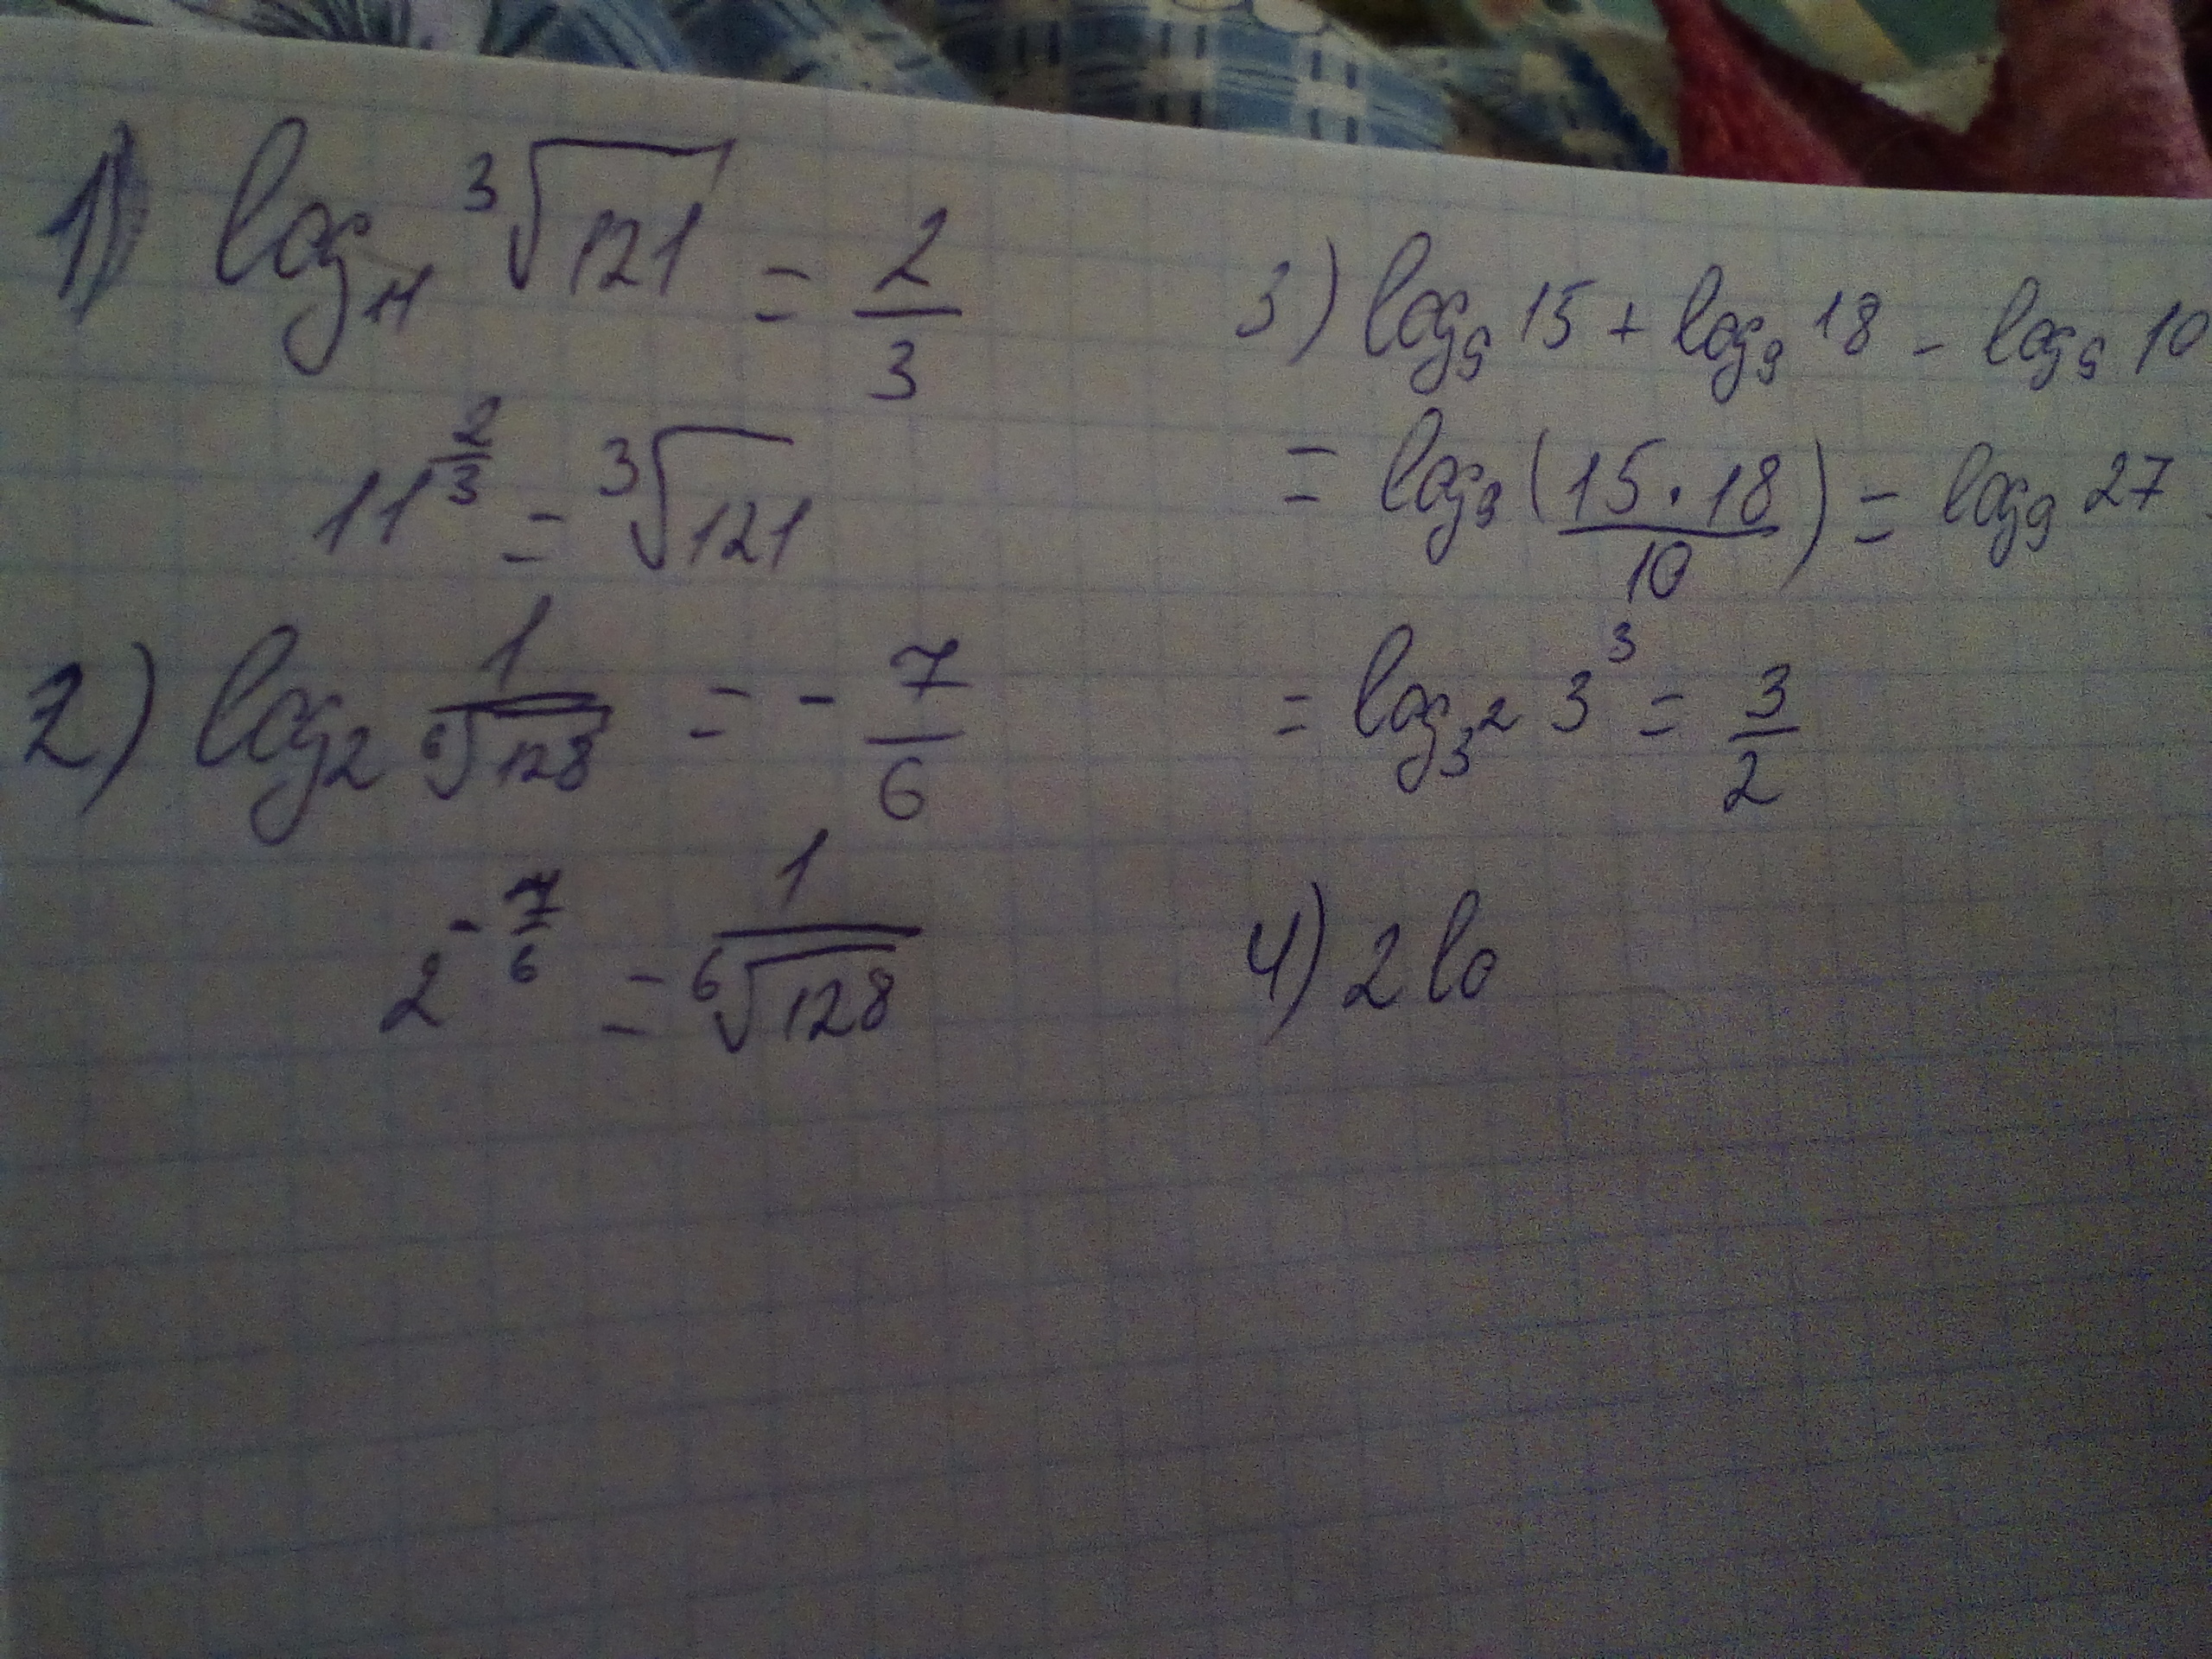 1) log₁₁ ³√121 = 2/3
11^(2/3) = ³√121
2) log₂ 1/⁶√128 = - 7/6
2^(-7/6) = 1/⁶√128
3) log₉ 15 + log₉ 18 - log₉ 10
= log₉ (15·18/10) = log₉ 27
= log₃² 3³ = 3/2
4) 2 lo